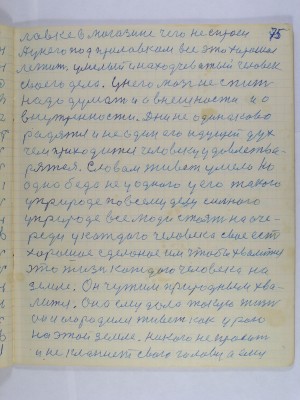 лавке в магазине чего не спроси 75
А у него под прилавкам все это хорошое
лежит. умелый и находчеватый человек
своего дела. У него мозг не спит
надо думат и о внешности и о
внутренности. Дни не одинаково
радят и не один его идущей дух
чем приходится человеку удовлетва-
рятся. Словам живет умело Но
одна беда не у одного у его такого
у природе по всему делу силного
у природе все люди стоят на оче-
реди у каждого человека свае ест
хорошое сделоное им чтобы хвалится
это жизн каждого человека на
земле. Он чужим природным хва-
лится. Она ему дала такую жизн
он и огородилси живет как у раю
на этой земле. никого не просит
и не кланиет свою голову а ему